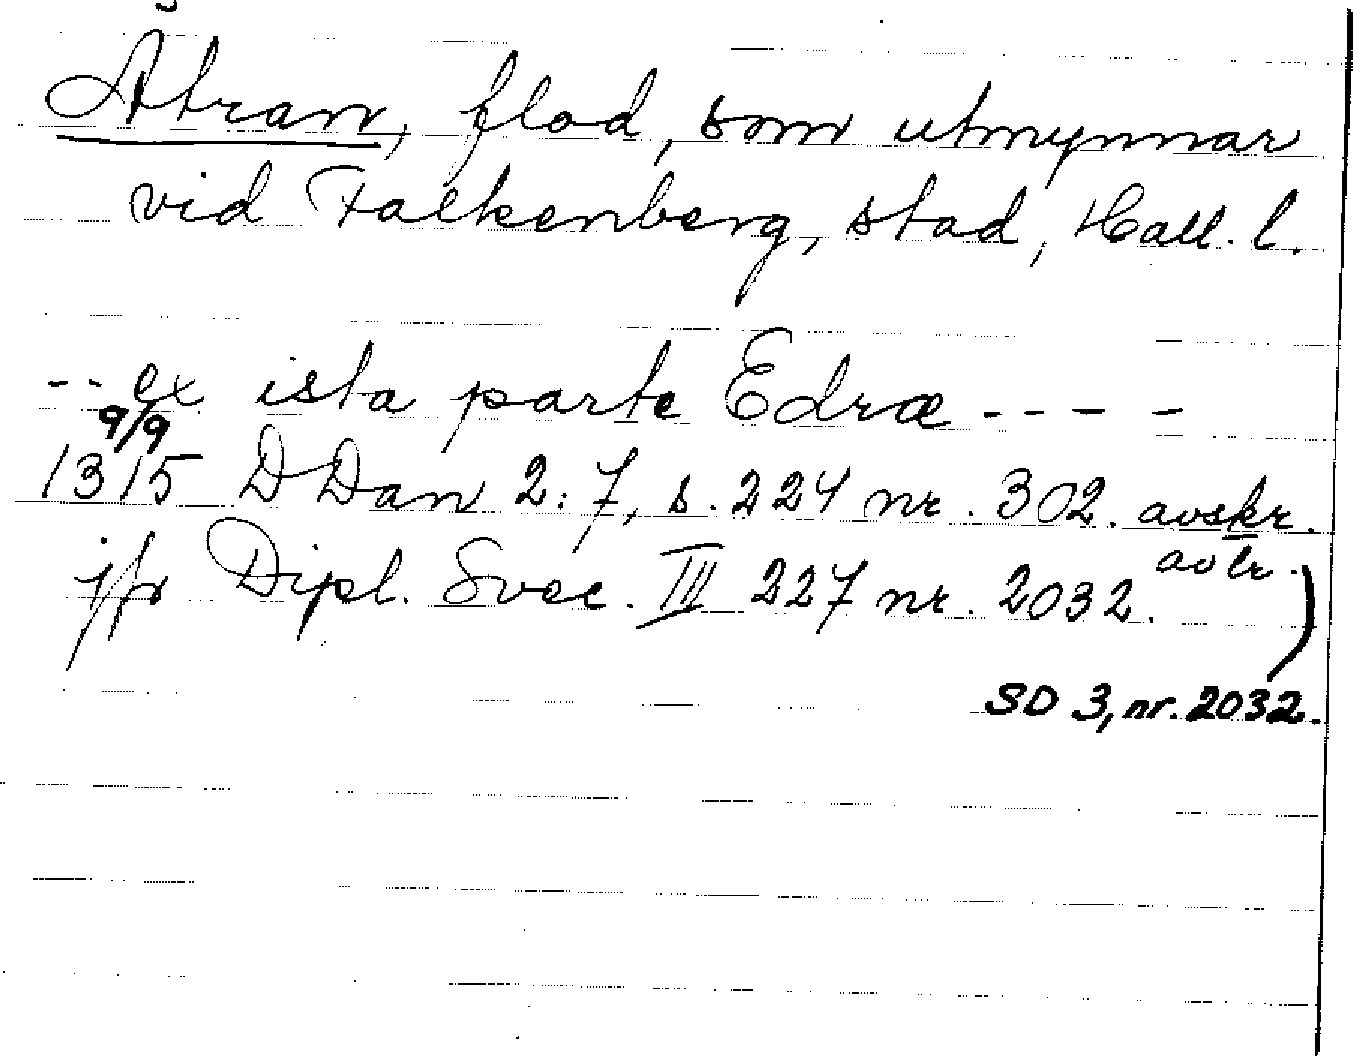 Ätran, flod, som utmynnar
vid Falkenberg, stad, Hall. l.
-- ex ista parte Edræ ----
9/9
1315 DDan 2:7, s. 224 nr. 302. avskr.
av tr.
jfr Dipl. Svec. III 227 nr. 2032.)
SD 3, nr. 2032.